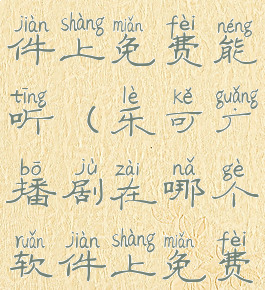 jiàn shàng miǎn fèi néng
件上免费能
tīng lè kě guǎng
听（乐可广
bō jù zài nǎ gè
播剧在哪个
ruǎn jiàn shàng miǎn fèi
软件上免费